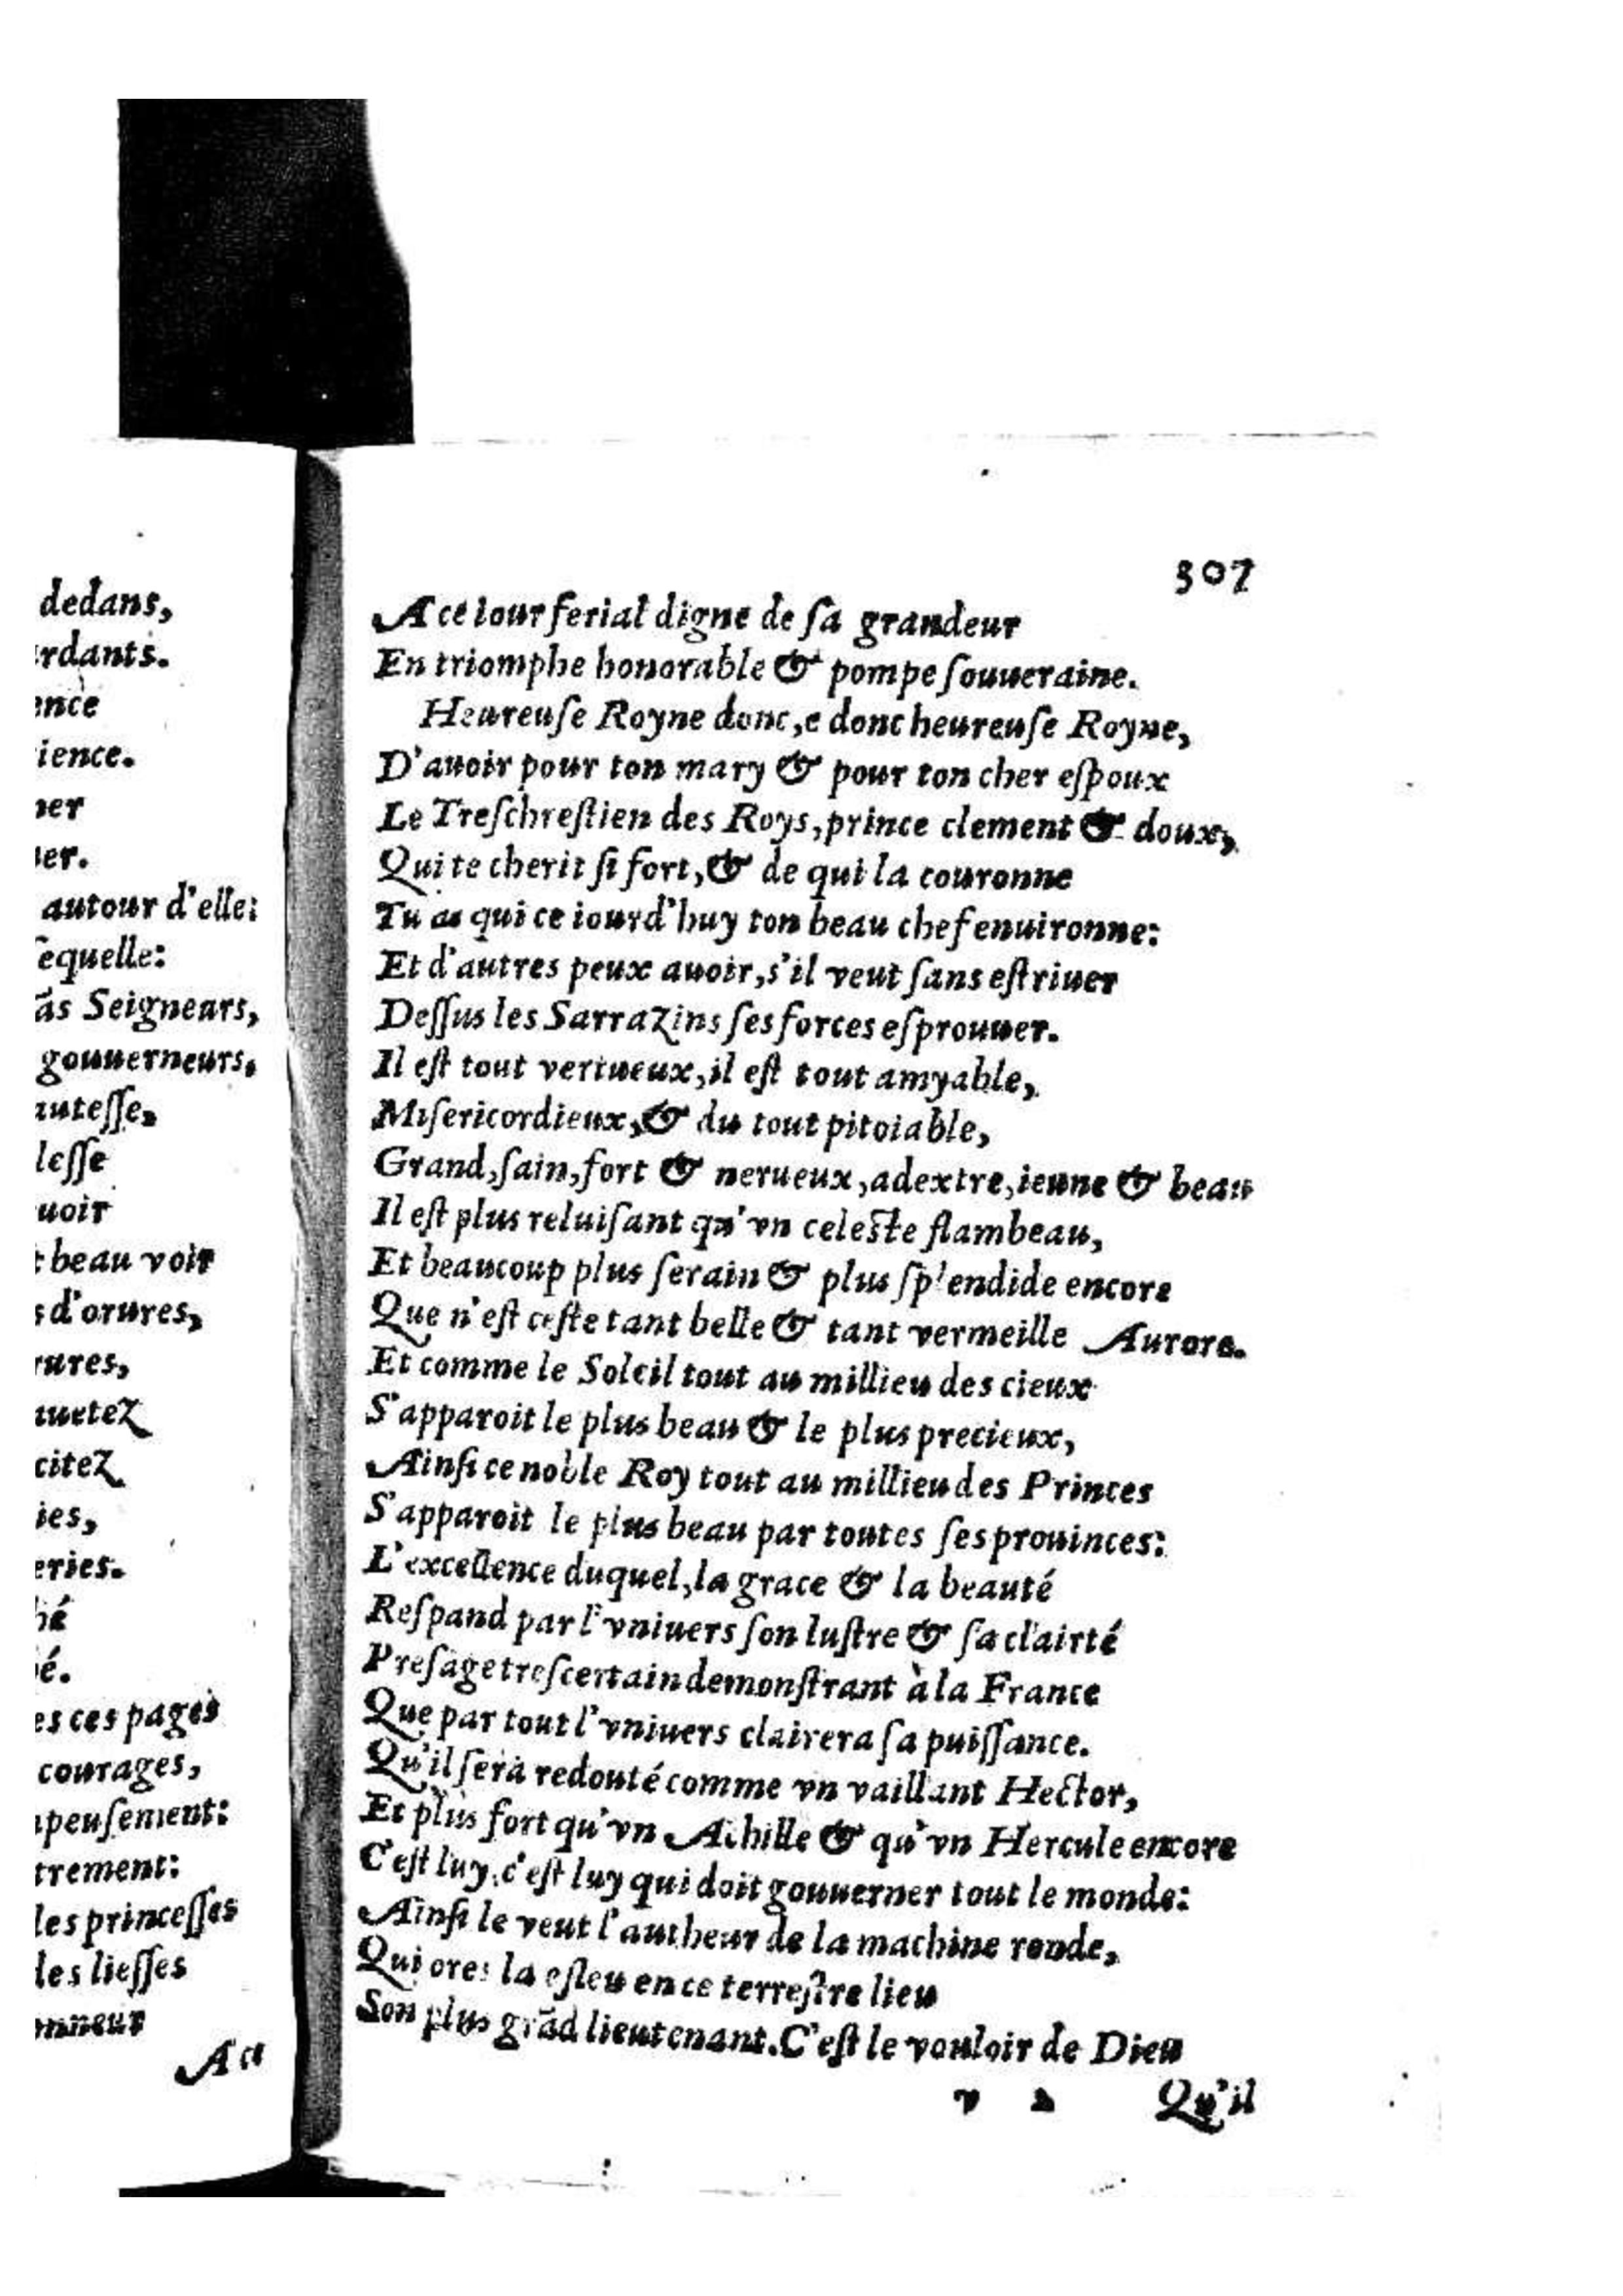 dedans,
rdants.
ence
ience.
ner
ner.
autour d'elle:
ſequelle:
ãs Seigneurs,
gouuerneurs.
auteſſe,
leſſe
uoir
t beau voir
s d'orures,
rures,
uetez
citez
ies,
eries.
hé
é.
es ces pages
courages,
peuſement:
trement:
les princeſſes
les lieſſes
onneur
Au
307
A ce iour ferial digne de ſa grandeur
En triomphe honorable & pompe ſouueraine.
Heureuſe Royne donc, e donc heureuſe Royne,
D'auoir pour ton mary & pour ton cher eſpoux
Le Treſchreſtien des Roys, prince clement & doux,
Qui te cherit ſi fort, & de qui la couronne
Tu as qui ce iourd'huy ton beau chef enuironne:
Et d'autres peux auoir, s'il veut ſans eſtriuer
Deſſus les Sarrazins ſes forces eſprouuer.
Il eſt tout vertueux, il eſt tout amyable,
Miſericordieux, & du tout pitoiable,
Grand, ſain, fort & nerueux, adextre, ieune & beau
Il eſt plus reluiſant qu'vn celeſte flambeau,
Et beaucoup plus ſerain & plus ſplendide encore
Que n'eſt ceſte tant belle & tant vermeille Aurore.
Et comme le Soleil tout au millieu des cieux
S'apparoit le plus beau & le plus precieux,
Ainſi ce noble Roy tout au millieu des Princes
S'apparoit le plus beau par toutes ſes prouinces:
L'excellence duquel, la grace & la beauté
Reſpand par l'vniuers ſon luſtre & ſa clairté
Preſage treſcertain demonſtrant à la France
Que par tout l'vniuers clairera ſa puiſſance.
Qu'il ſera redouté comme vn vaillant Hector,
Et plus fort qu'vn Achille & qu'vn Hercule encore
C'eſt luy, c'eſt luy qui doit gouuerner tout le monde:
Ainſi le veut l'autheur de la machine ronde,
Qui ores la eſleu en ce terreſtre lieu
Son plus grãd lieutenant. C'eſt le vouloir de Dieu
v 2 Qu'il